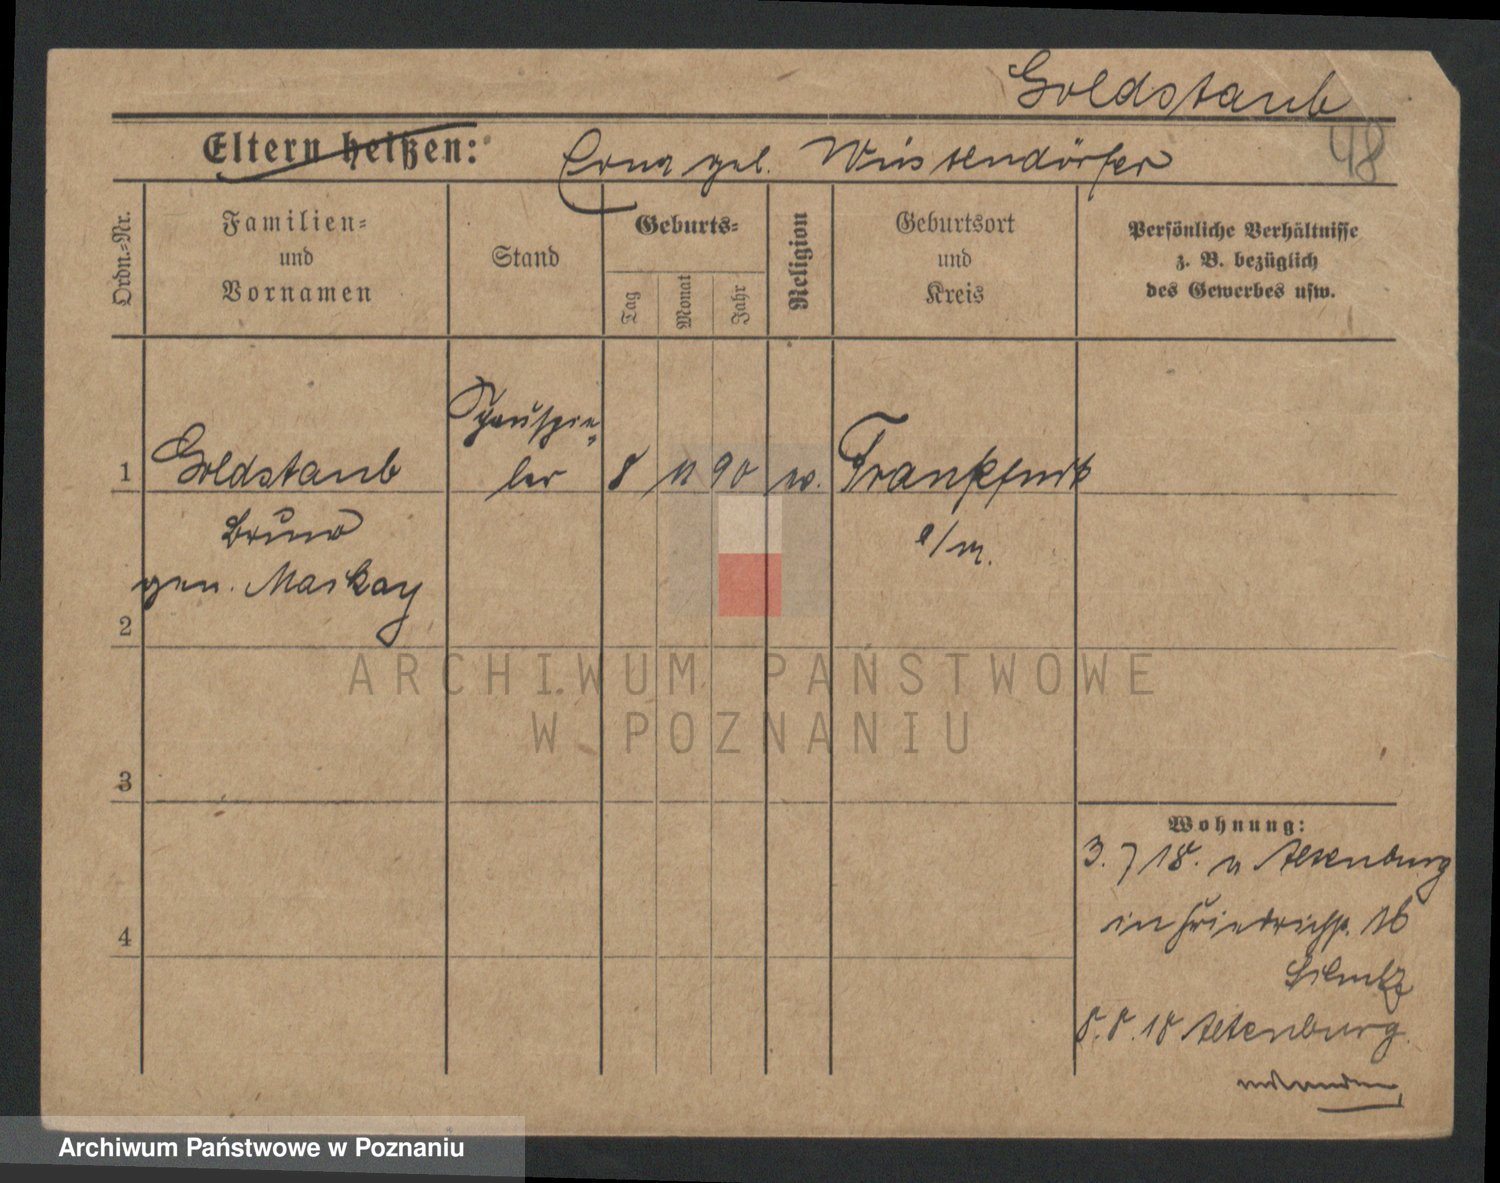 Goldstaub
48
Eltern heißen: Erna geb. Wüstendörfer
Ordn.-Nr.
Familien-
und
Vornamen
Stand
Geburts-
Tag
Monat
Jahr
Religion
Geburtsort
und
Kreis
Persönliche Verhältnisse
z. B. bezüglich
des Gewerbes usw.
Schauspie-
1 Goldstaub ler 8 11 90 Frankfurt
Bruno a/M.
gen. Markay
2
ARCHIWUM PAŃSTWOWE
W POZNANIU
3
Wohnung:
3. 7 18. v Altenburg
in Friedrichstr. 16
4
8. 8. 18 Altenburg
Archiwum Państwowe w Poznaniu